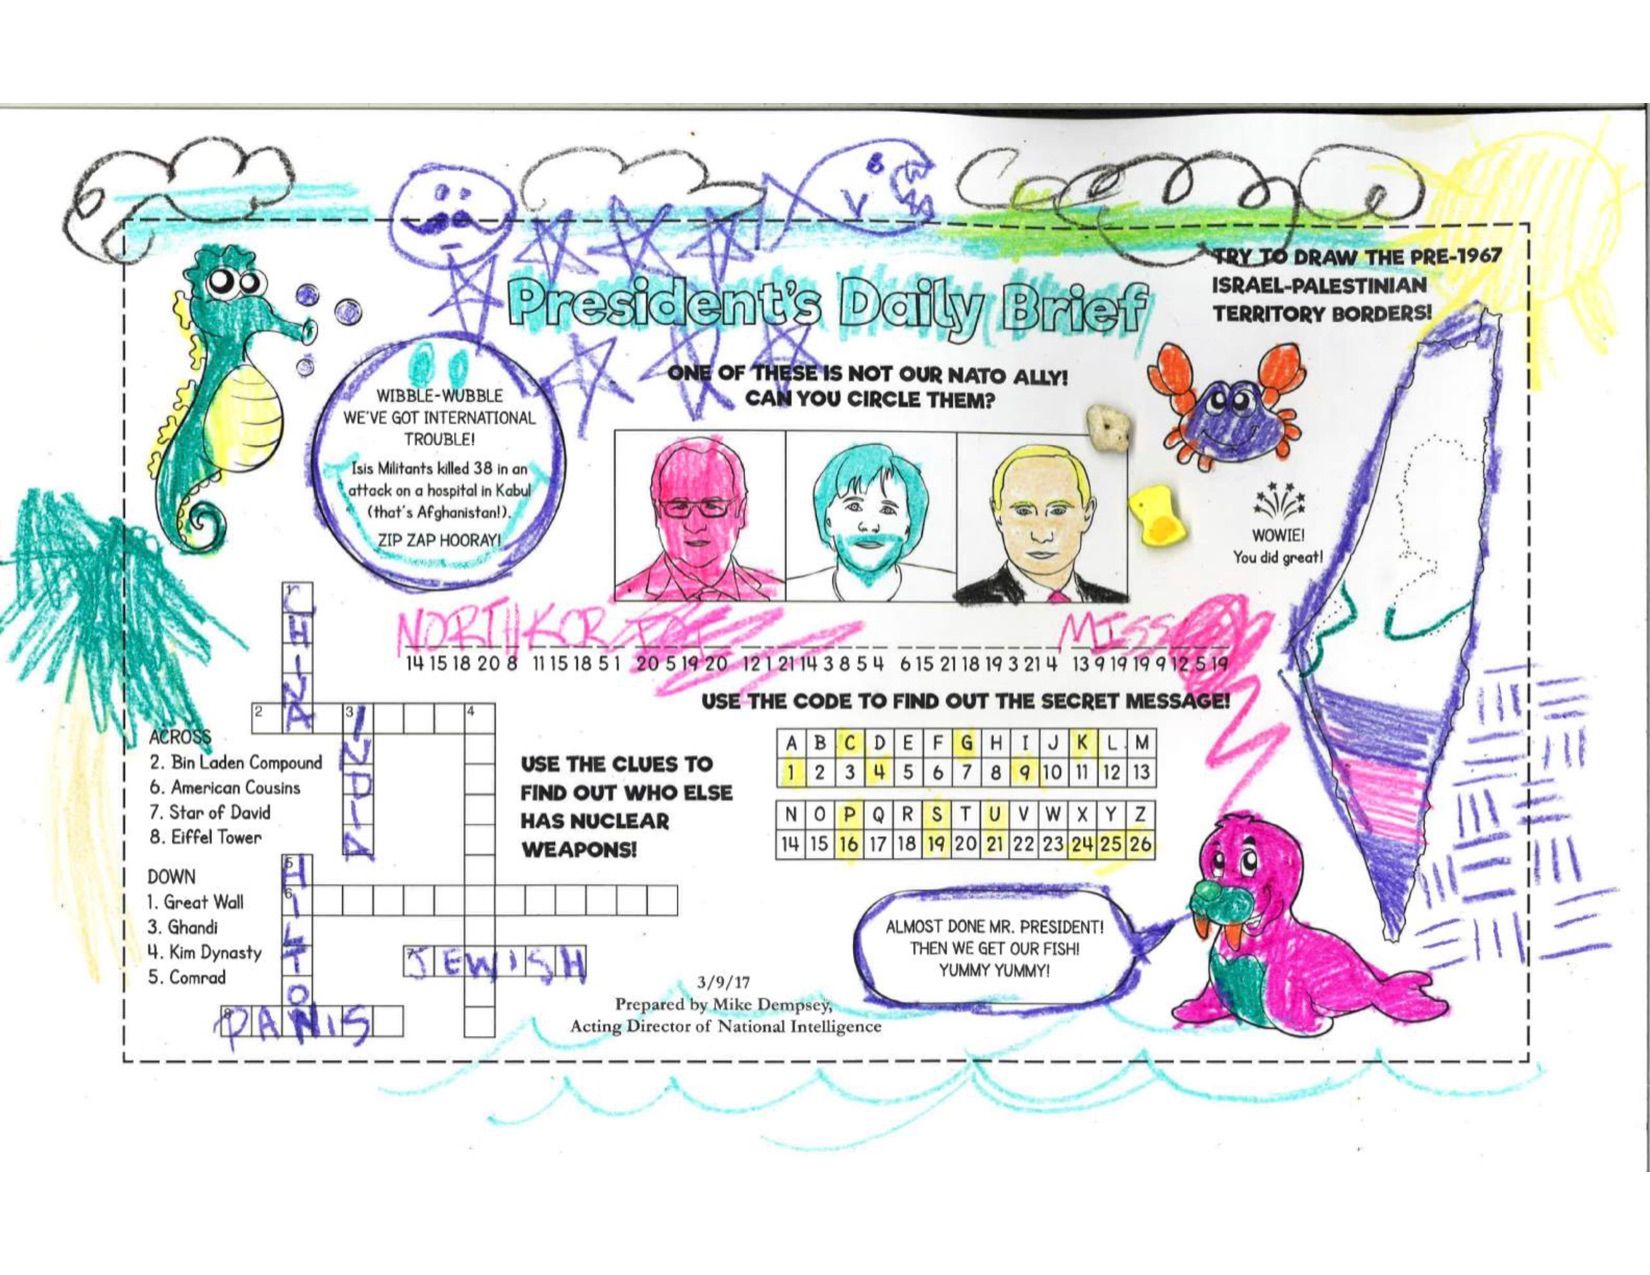 President's Daily Brief
TRY TO DRAW THE PRE-1967
ISRAEL-PALESTINIAN
TERRITORY BORDERS!
WIBBLE-WUBBLE
WE'VE GOT INTERNATIONAL
TROUBLE!
Isis Militants killed 38 in an
attack on a hospital in Kabul
(that's Afghanistan!).
ZIP ZAP HOORAY!
ONE OF THESE IS NOT OUR NATO ALLY!
CAN YOU CIRCLE THEM?
WOWIE!
You did great!
NORTH KOR MISS
14 15 18 20 8 11 15 18 5 1 20 5 19 20 12 1 21 14 3 8 5 4 6 15 21 18 19 3 21 4 13 9 19 19 9 12 5 19
USE THE CODE TO FIND OUT THE SECRET MESSAGE!
A B C D E F G H I J K L M
1 2 3 4 5 6 7 8 9 10 11 12 13
N O P Q R S T U V W X Y Z
14 15 16 17 18 19 20 21 22 23 24 25 26
CHINA
2 3 4
INDIA
ACROSS
2. Bin Laden Compound
6. American Cousins
7. Star of David
8. Eiffel Tower
DOWN
1. Great Wall
3. Ghandi
4. Kim Dynasty
5. Comrad
USE THE CLUES TO
FIND OUT WHO ELSE
HAS NUCLEAR
WEAPONS!
5
6
HILTON
JEWISH
PANIS
3/9/17
Prepared by Mike Dempsey,
Acting Director of National Intelligence
ALMOST DONE MR. PRESIDENT!
THEN WE GET OUR FISH!
YUMMY YUMMY!